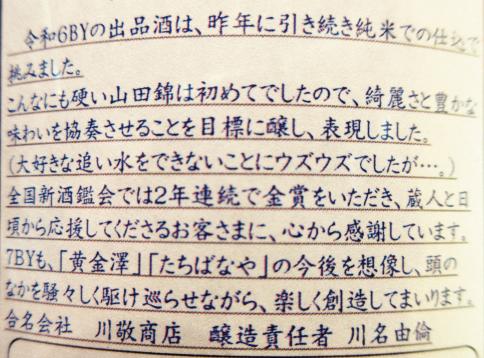 令和6BYの出品酒は、昨年に引き続き純米での仕込で
挑みました。
こんなにも硬い山田錦は初めてでしたので、綺麗さと豊かな
味わいを協奏させることを目標に醸し、表現しました。
(大好きな追い水をできないことにウズウズでしたが…。)
全国新酒鑑会では2年連続で金賞をいただき、蔵人と日
頃から応援してくださるお客さまに、心から感謝しています。
7BYも、「黄金澤」「たちばなや」の今後を想像し、頭の
なかを騒々しく駆け巡らせながら、楽しく創造してまいります。
合名会社 川敬商店 醸造責任者 川名由倫